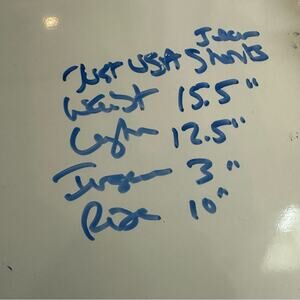 Jean
Just USA Shorts
Waist 15.5"
Length 12.5"
Inseam 3"
Rise 10"